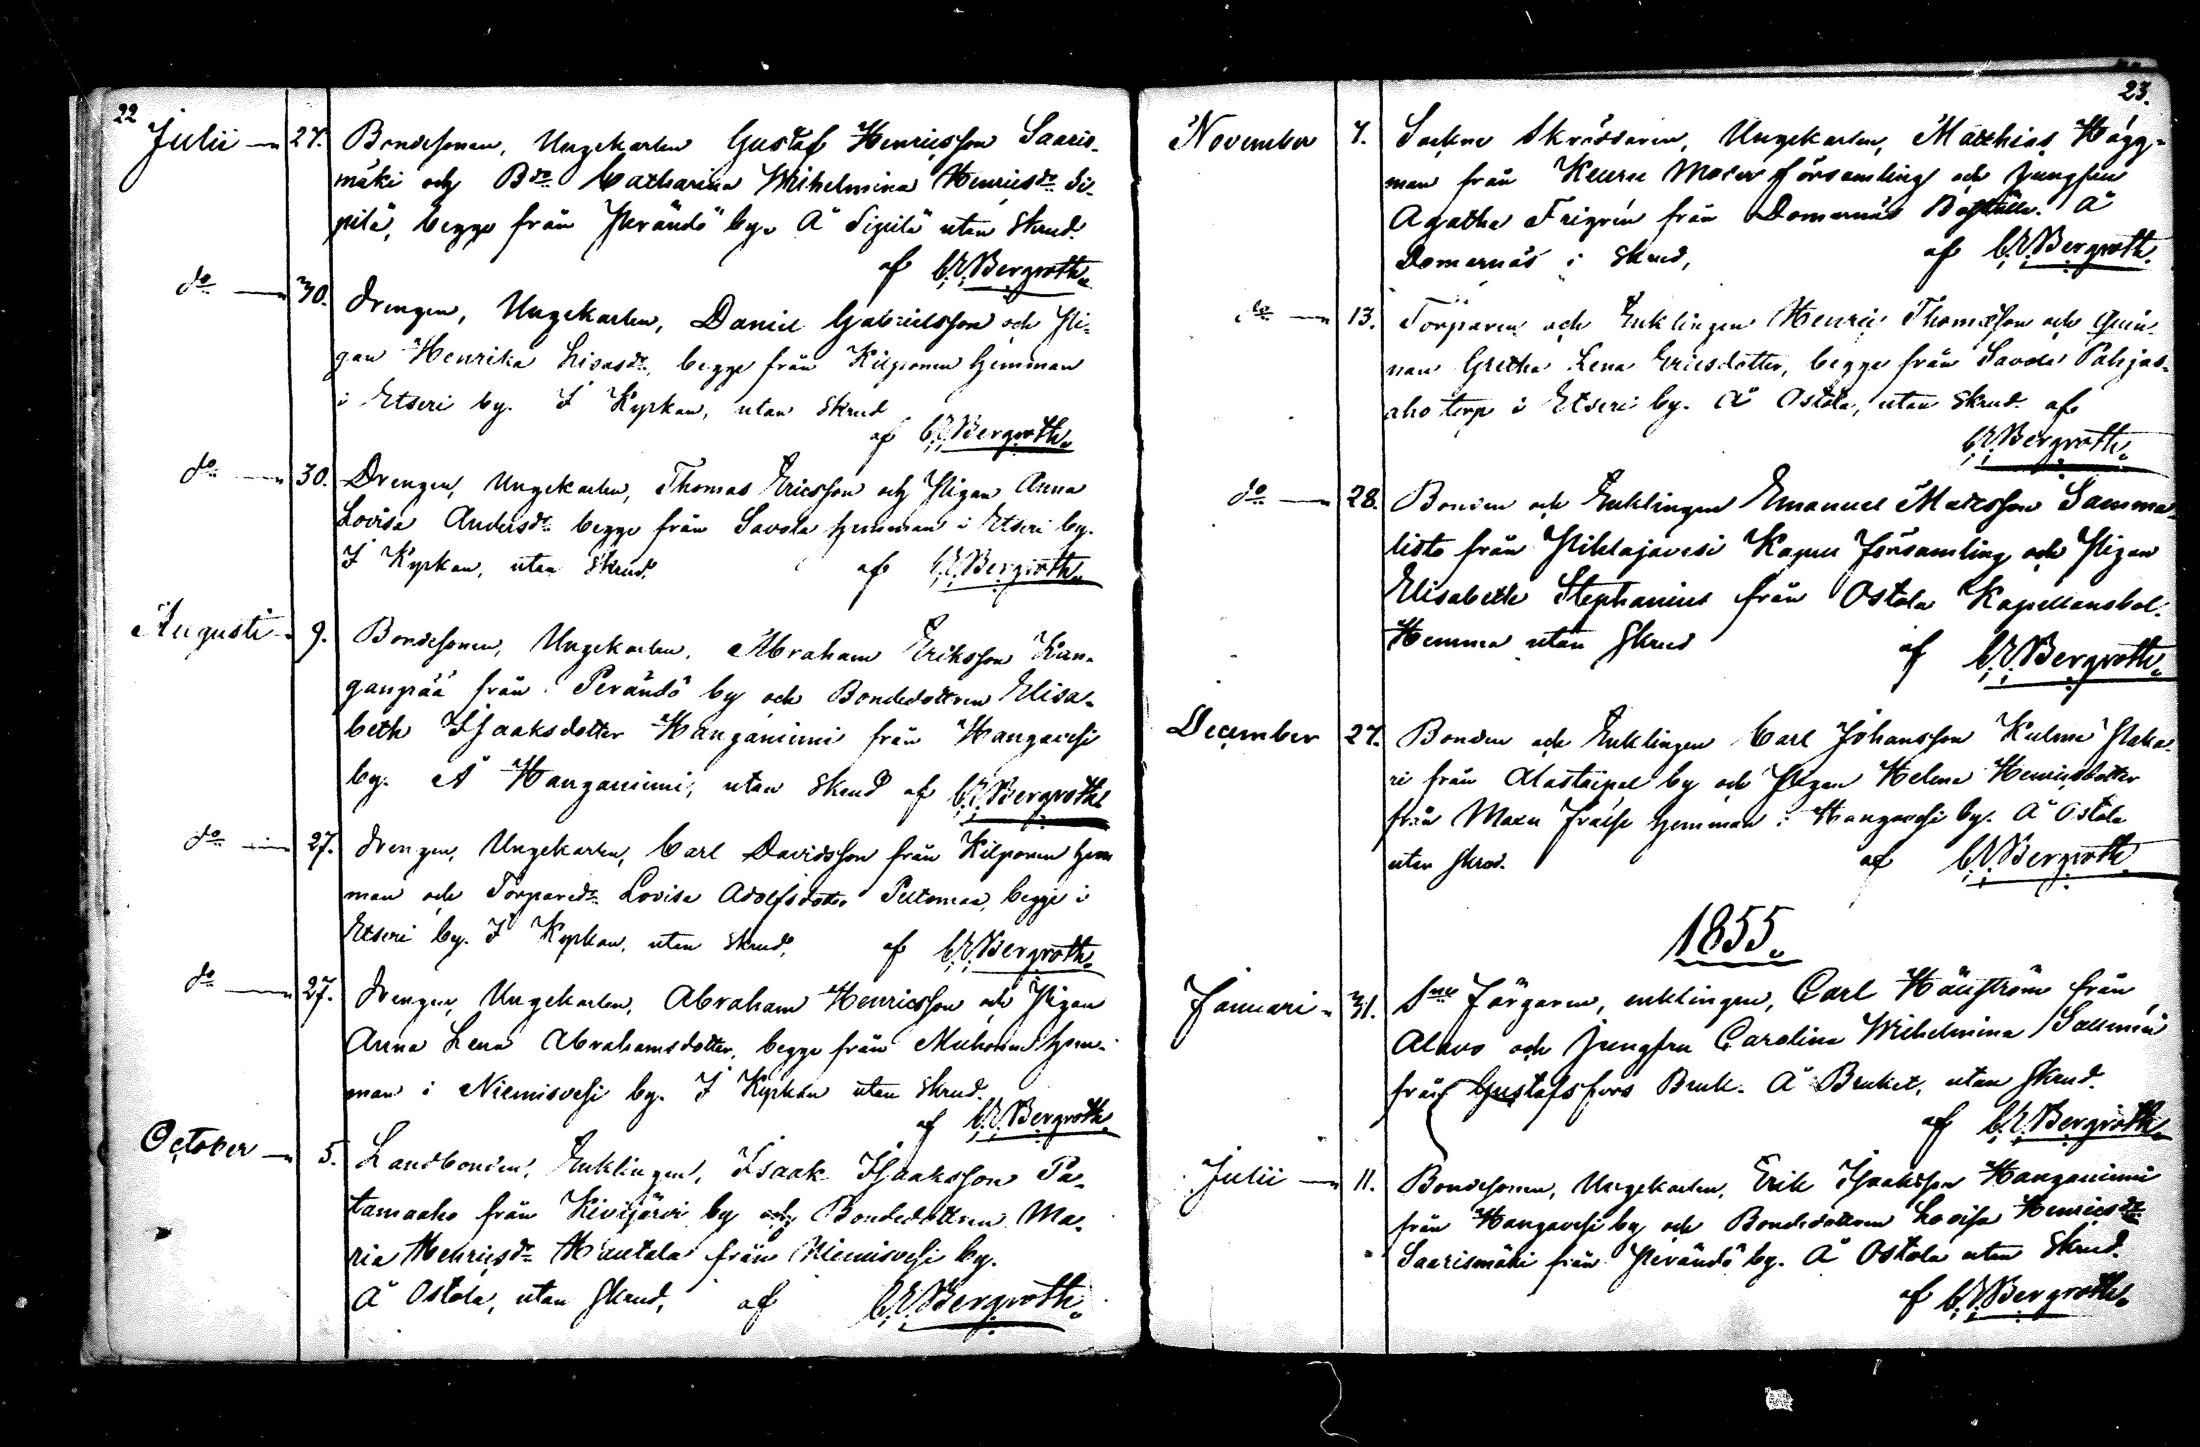 22
Julii 27. Bondesonen, Ungekarlen Gustaf Henricsson Saaris-
mäki och Bdr Catharina Wilhelmina Henricsdr Si-
pilä, begge från Perändö by. Å Sipilä utan skrud.
af C.E. Bergroth.
do 30. Drengen, Ungekarlen, Daniel Gabrielsson och Pi-
gan Henrika Lisasdr, begge från Kilponen hemman
i Etseri by. I Kyrkan, utan skrud
af C.E. Bergroth.
do 30. Drengen, Ungekarlen, Thomas Ericsson och Pigan Anna
Lovisa Andersdr begge från Savola hemman i Etseri by.
I Kyrkan, utan skrud. af C.E. Bergroth.
Augusti 9. Bondesonen, Ungekarlen, Abraham Eriksson Kan-
ganpää från Perändö by och Bondedottren Elisa-
beth Isaaksdotter Hanganiemi från Hangavesi
by. Å Hanganiemi, utan skrud af C.E. Bergroth
do 27. Drengen, Ungekarlen, Carl Davidsson från Kilponen hem
man och Torparedr Lovisa Adolfsdotter Peltomaa, begge i
Etseri by. I Kyrkan, utan skrud, af C.E. Bergroth.
do 27. Drengen, Ungekarlen, Abraham Henricsson och Pigan
Anna Lena Abrahamsdotter, begge från Muhonen hem-
man i Niemisvesi by. I Kyrkan utan skrud.
af C.E. Bergroth.
October 5. Landbonden, Enklingen, Isaak Isaaksson Pa-
tamaaho från Kivijärvi by och Bondedottren Ma-
ria Henricsdr Hautala från Niemisvesi by.
Å Ostola, utan skrud, af C.E. Bergroth.
23.
November 7. Sockne Skräddaren, Ungekarlen, Mathias Hägg-
man från Keuru Moder församling och Jungfru
Agatha från Domarnäs Boställe. Å
Domarnäs i skrud, af C.E. Bergroth.
do 13. Torparen och Enklingen Henric Thomasson och Quin-
nan Gretha Lena Ericsdotter, begge från Savola Pahjas-
aho torp i Etseri by. Å Ostola, utan skrud. af
C.E. Bergroth.
do 28. Bonden och Enklingen Emanuel Matsson Samma-
listo från Pihlajavesi Kapell församling och Pigan
Elisabeth Stephanius från Ostola Kapellansbol.
Hemma utan skrud af C.E. Bergroth.
December 27. Bonden och Enklingen Carl Johansson
ri från Alastaipal by och Pigan Helena Henricsdotter
från hemman i Hangavesi by. Å Ostola
utan skrud. af C.E. Bergroth
1855.
Januari 31. Färgaren, enklingen, Carl från
Alavo och Jungfru Carolina Wilhelmina Sallmén
från Gustafsfors Bruk. Å Bruket, utan skrud.
af C.E. Bergroth.
Julii 11. Bondesonen, Ungekarlen, Erik Isaaksson Hanganiemi
från Hangavesi by och Bondedottren Lovisa Henricsdr
Saarismäki från Perändö by. Å Ostola utan skrud.
af C.E. Bergroth.